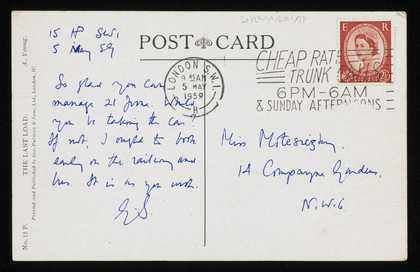 15 HP SW1
5 May 59
So glad you can
manage 21 June. Would
you be taking the car?
If not, I ought to book
early on the railway and
bus. It is as you wish.
POST CARD
E R
CHEAP RATE
TRUNK
6PM-6AM
& SUNDAY AFTERNOONS
LONDON S.W.1.
9 15AM
5 MAY
1959
Miss
14 Compayne Gardens,
N.W.6
THE LAST LOAD.
A. Young.
Printed and Published by
No. 11 P.